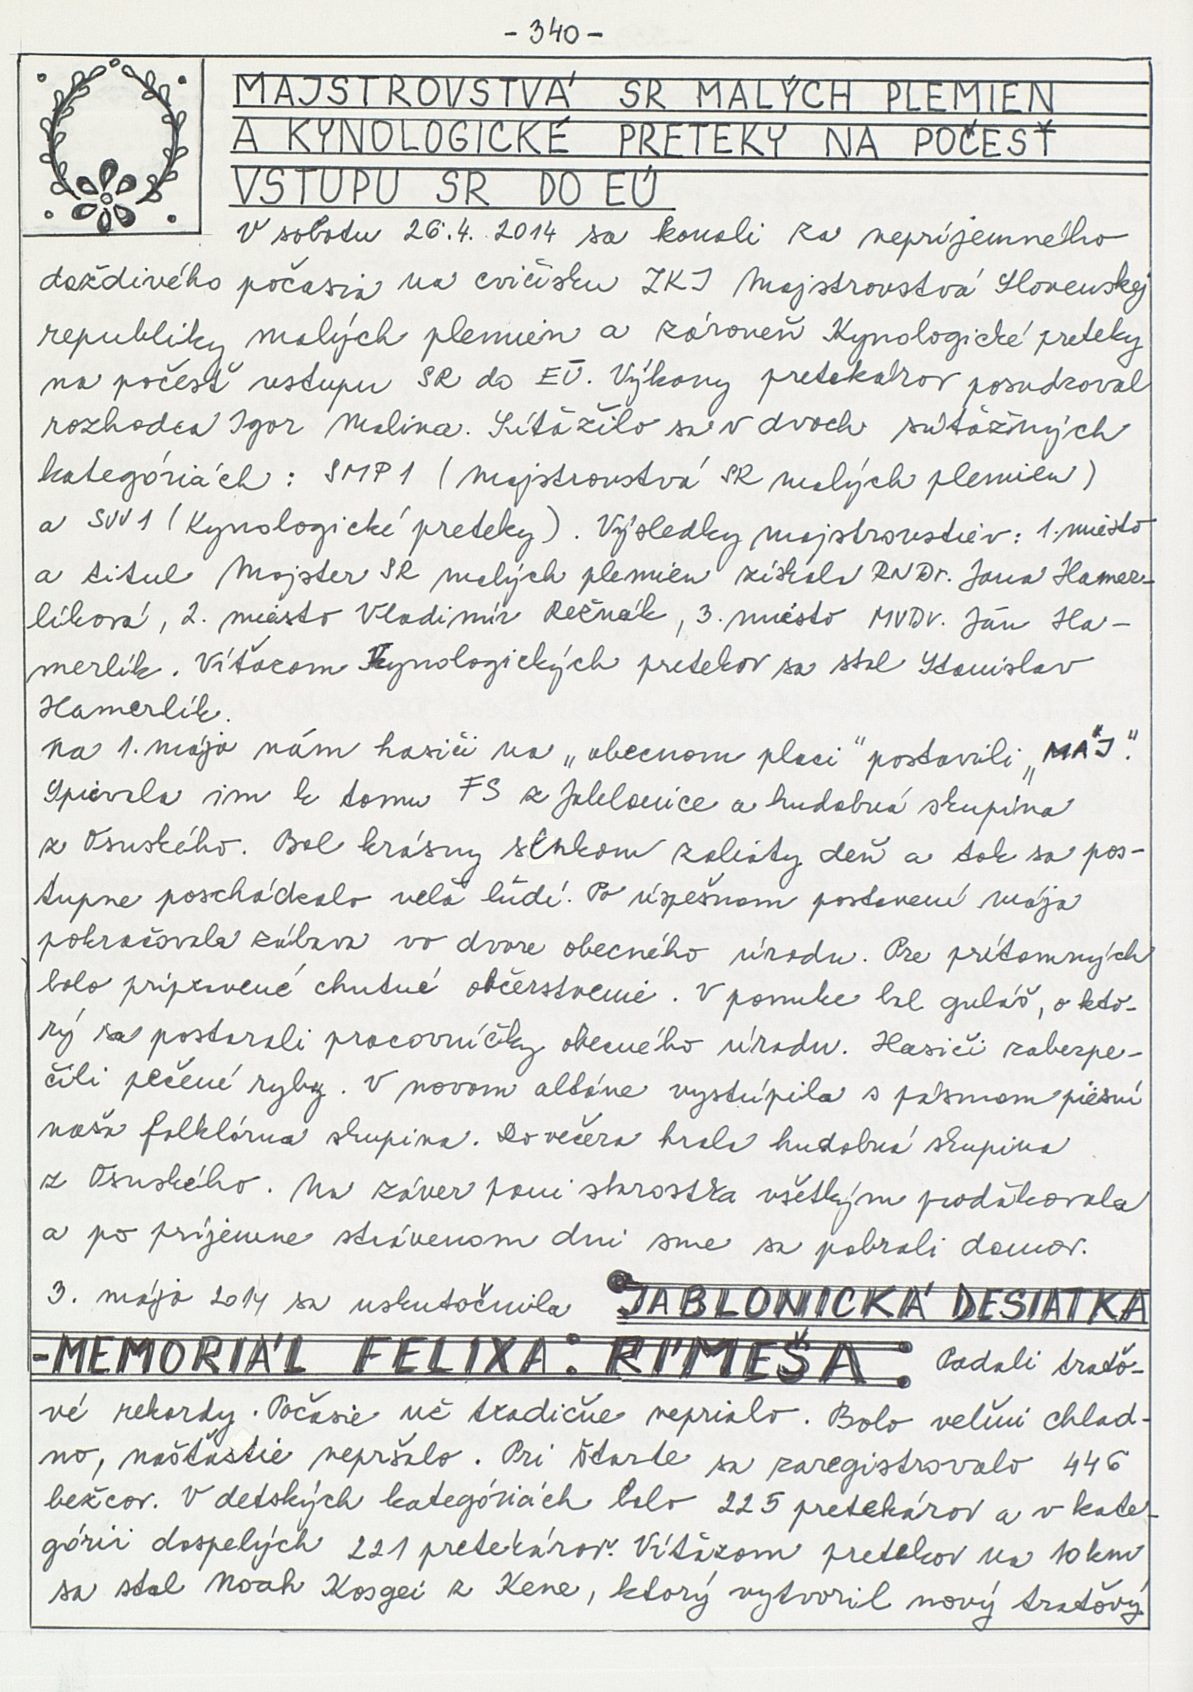 - 340 -
MAJSTROVSTVÁ SR MALÝCH PLEMIEN
A KYNOLOGICKÉ PRETEKY NA POČESŤ
VSTUPU SR DO EÚ
V sobotu 26.4. 2014 sa konali za nepríjemného
daždivého počasia na cvičisku ZKJ Majstrovstvá Slovenskej
republiky malých plemien a zároveň Kynologické preteky
na počesť vstupu SR do EÚ. Výkony pretekárov posudzoval
rozhodca Igor Malina. Súťažilo sa v dvoch súťažných
kategóriách : SMP1 (Majstrovstvá SR malých plemien)
a SVV1 (Kynologické preteky). Výsledky majstrovstiev: 1. miesto
a titul Majster SR malých plemien získala RNDr. Jana Hamer-
líková, 2. miesto Vladimír Rečnák, 3. miesto MVDr. Ján Ha-
merlík. Víťazom Kynologických pretekov sa stal Stanislav
Hamerlík.
Na 1. mája nám hasiči na „obecnom placi" postavili „MÁJ".
Spievala im k tomu FS z Jablonice a hudobná skupina
z Osuského. Bol krásny slnkom zaliaty deň a tak sa pos-
tupne poschádzalo veľa ľúdí. Po úspešnom postavení mája
pokračovala zábava vo dvore obecného úradu. Pre prítomných
bolo pripravené chutné občerstvenie. V ponuke bol guláš, o kto-
rý sa postarali pracovníčky obecného úradu. Hasiči zabezpe-
čili pečené ryby. V novom altáne vystúpila s pásmom piesní
naša folklórna skupina. Do večera hrala hudobná skupina
z Osuského. Na záver pani starostka všetkým poďakovala
a po príjemne strávenom dni sme sa pobrali domov.
3. mája 2014 sa uskutočnila JABLONICKÁ DESIATKA
-MEMORIÁL FELIXA: RÍMEŠA: Padali traťo-
vé rekordy. Počasie už tradične neprialo. Bolo veľmi chlad-
no, našťastie nepršalo. Pri štarte sa zaregistrovalo 446
bežcov. V detských kategóriách bolo 225 pretekárov a v kate-
górii dospelých 221 pretekárov. Víťazom pretekov na 10 km
sa stal Noah Kosgei z Kene, ktorý vytvoril nový traťový